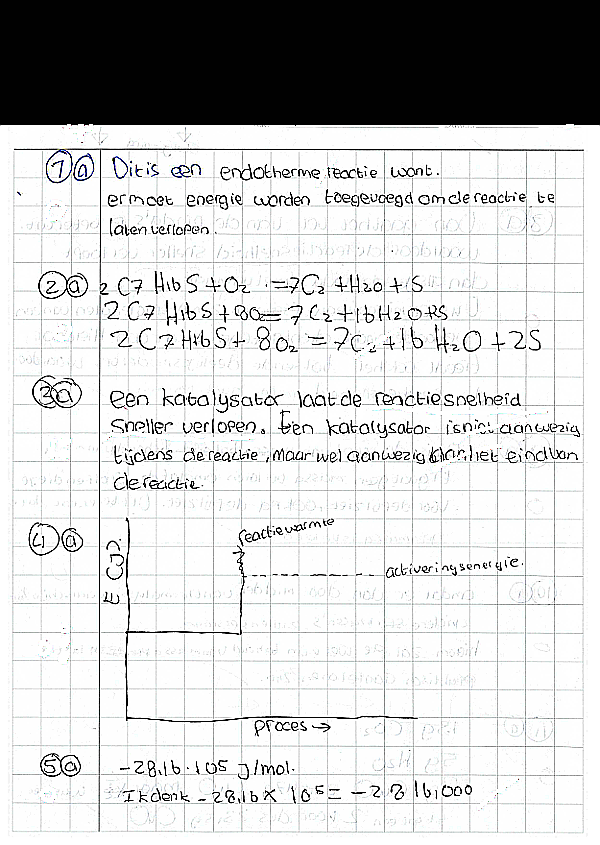 1 a Dit is een endotherme reactie want.
er moet energie worden toegevoegd om de reactie te
laten verlopen.
2 a 2 C7 H16 S + O2 = 7C2 + H2O + S
2 C7 H16 S + 8O2 = 7C2 + 16 H2O + S
2 C7 H16 S + 8O2 = 7C2 + 16 H2O + 2S
3 a Een katalysator laat de reactiesnelheid
sneller verlopen. Een katalysator is niet aanwezig
tijdens de reactie, maar wel aanwezig aan het eind van
de reactie.
4 a
reactiewarmte
E (J).
activeringsenergie.
proces →
5 a -28,16 · 10^5 J/mol.
Ik denk -28,16 x 10^5 = -2816,000